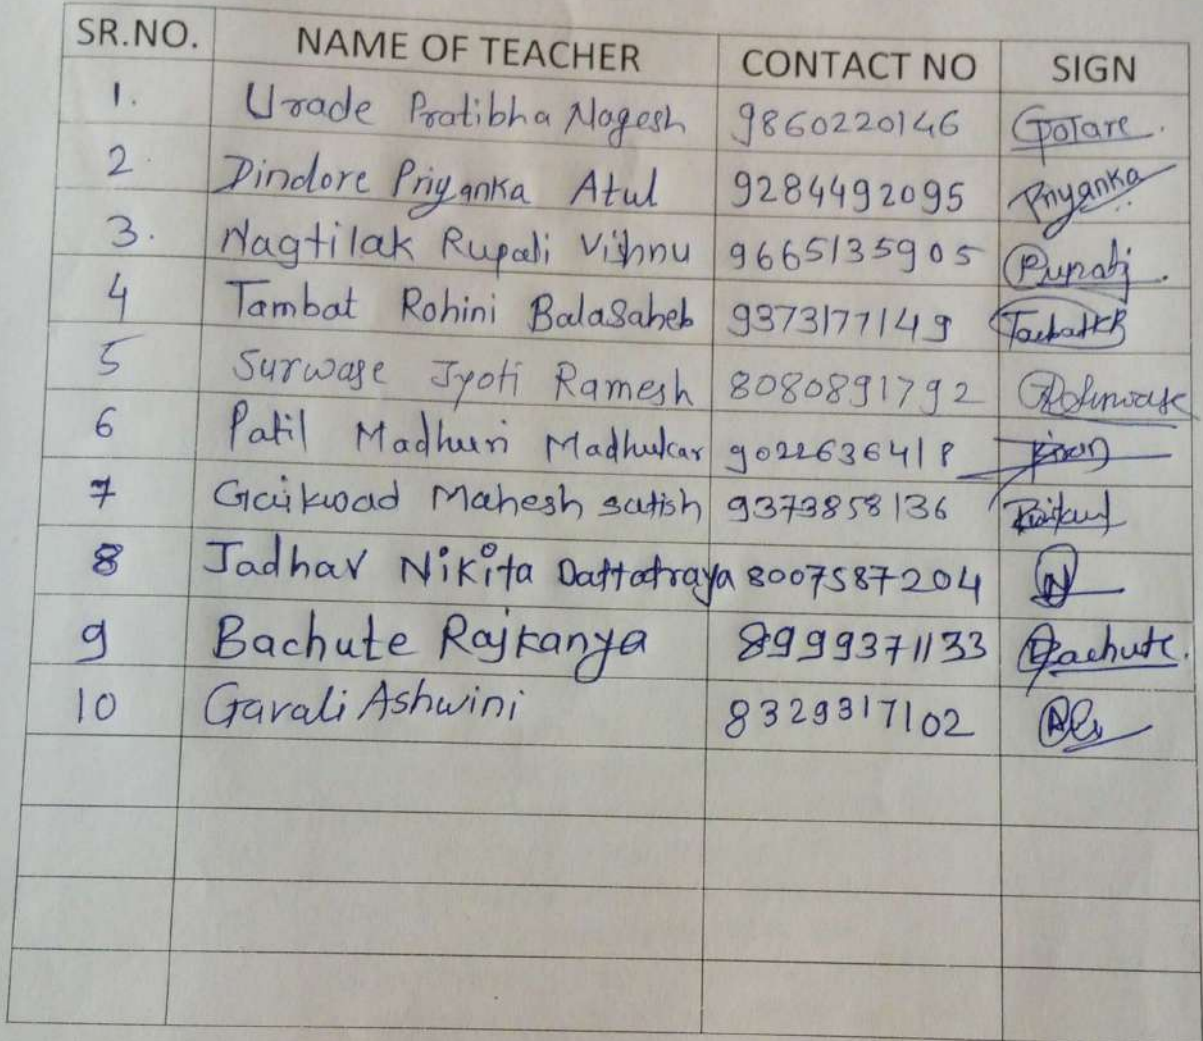 SR.NO. NAME OF TEACHER CONTACT NO SIGN
1. Urade Pratibha Nagesh 9860220146
2. Dindore Priyanka Atul 9284492095 Priyanka
3. Nagtilak Rupali Vishnu 9665135905 Rupali
4 Tambat Rohini BalaSaheb 9373177149
5 Surwase Jyoti Ramesh 8080891792
6 Patil Madhuri Madhukar 9022636418
7 Gaikwad Mahesh satish 9373858136
8 Jadhav Nikita Dattatraya 8007587204 N
9 Bachute Rajkanya 8999371133 Bachute.
10 Gavali Ashwini 8329317102